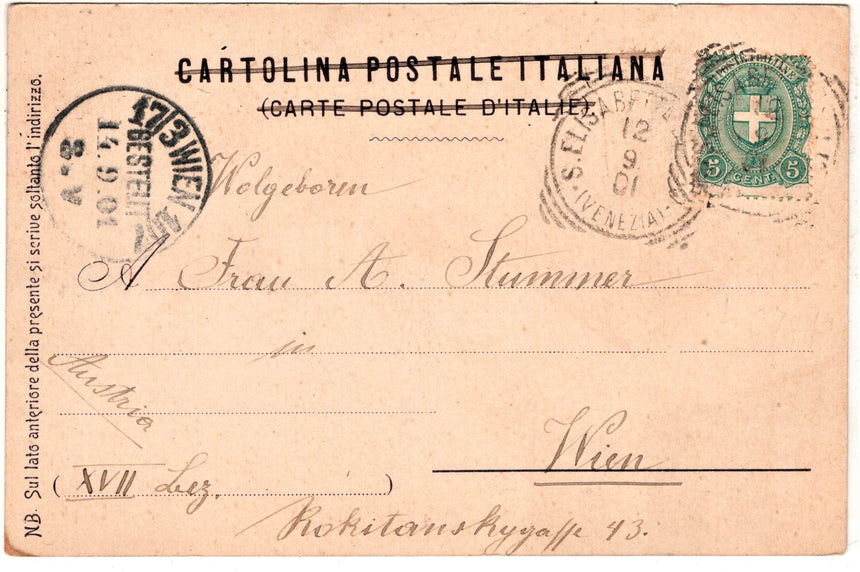 CARTOLINA POSTALE ITALIANA
(CARTE POSTALE D'ITALIE)
POSTE ITALIANE
5 CENT. 5
S. ELISABETTA
12
9
01
(VENEZIA)
17/3 WIEN
BESTELLT
14.9.01
8.V
Wolgeboren
A Frau A. Stummer
in
Austria
Wien
(XVII Bez.)
Rokitanskygasse 43.
NB. Sul lato anteriore della presente si scrive soltanto l'indirizzo.